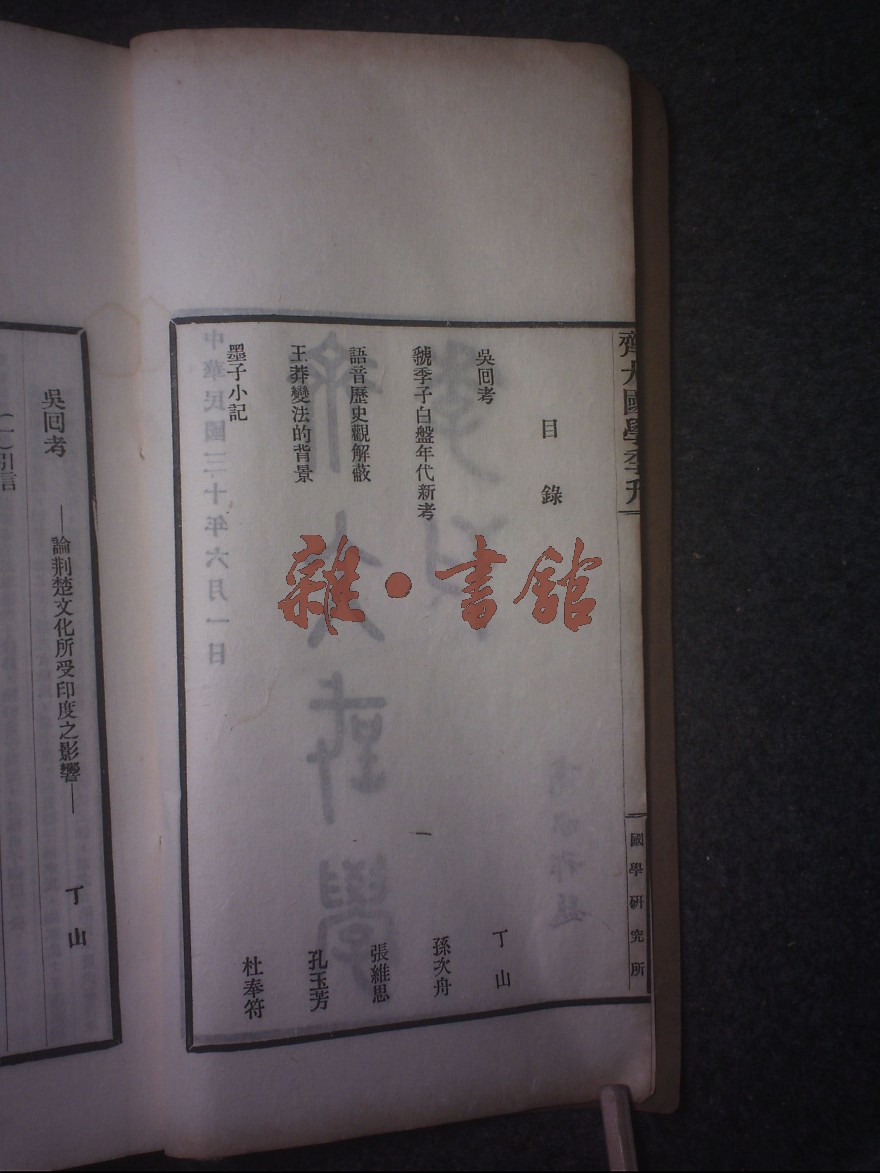 齊大國學季刊
國學研究所
目錄
吳回考 丁山
虢季子白盤年代新考 孫次舟
語音歷史觀解蔽 張維思
王莽變法的背景 孔玉芳
墨子小記 杜奉符
中華民國三十年六月一日
雜·書館
吳回考
——論荆楚文化所受印度之影響—— 丁山
(一)引言